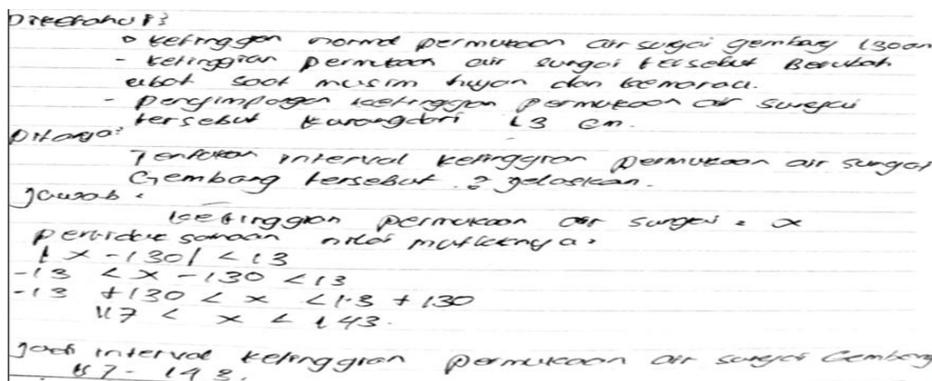 Diketahui:
- Ketinggian normal permukaan air sungai gembang 130cm
- Ketinggian permukaan air sungai tersebut Berubah
akibat saat musim hujan dan kemarau.
- Penyimpangan ketinggian permukaan air sungai
tersebut kurang dari 13 cm.
Ditanya:
Tentukan interval ketinggian permukaan air sungai
Gembang tersebut ? jelaskan.
Jawab:
Ketinggian permukaan air sungai = x
pertidaksamaan nilai mutlaknya:
|x -130| < 13
-13 < x -130 < 13
-13 +130 < x < 13 + 130
117 < x < 143.
Jadi interval ketinggian permukaan air sungai Gembang
117 - 143.